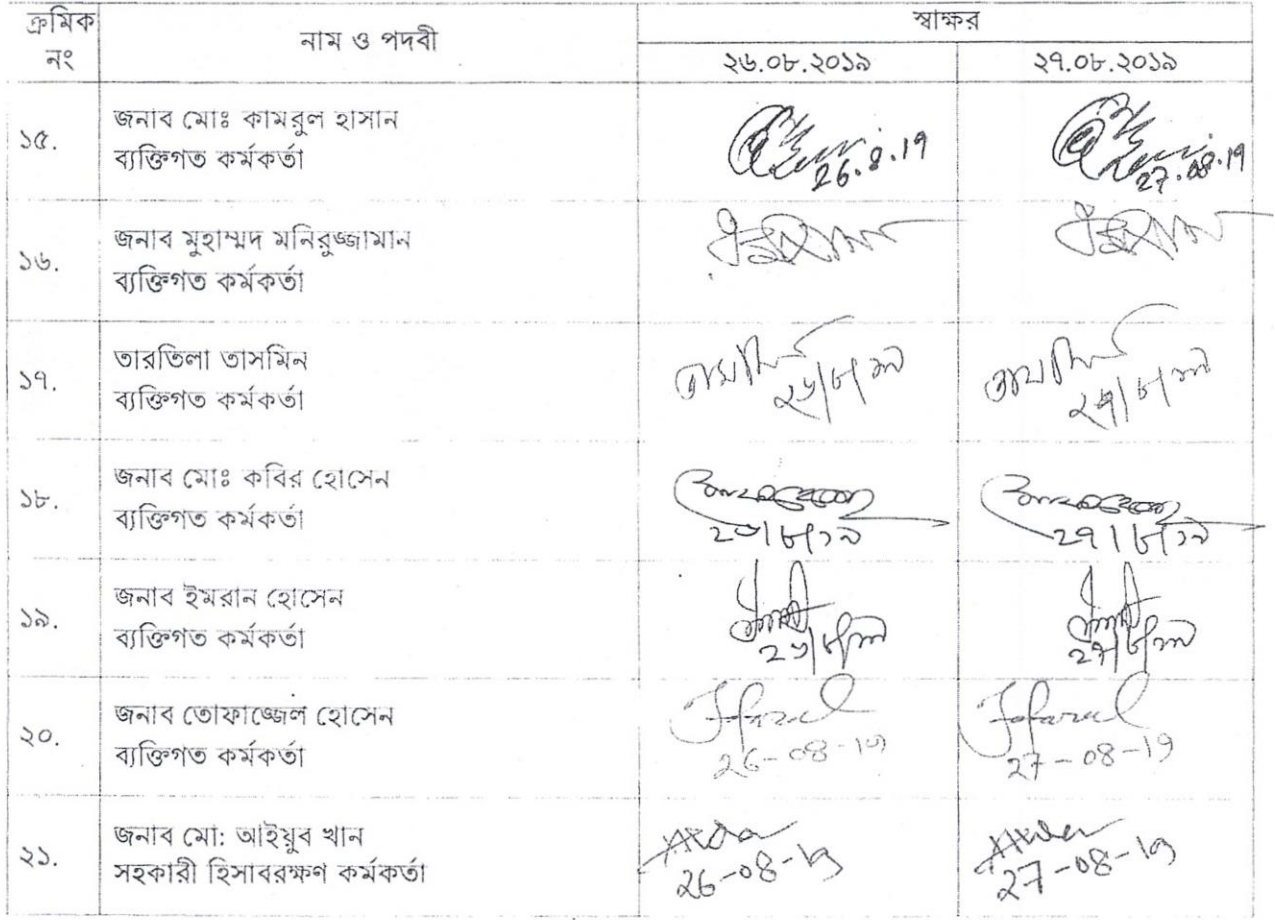 ক্রমিক নং
নাম ও পদবী
স্বাক্ষর
২৬.০৮.২০১৯
২৭.০৮.২০১৯
১৫.
জনাব মোঃ কামরুল হাসান
ব্যক্তিগত কর্মকর্তা
26.8.19
27.08.19
১৬.
জনাব মুহাম্মদ মনিরুজ্জামান
ব্যক্তিগত কর্মকর্তা
১৭.
তারতিলা তাসমিন
ব্যক্তিগত কর্মকর্তা
২৬/৮/১৯
২৭/৮/১৯
১৮.
জনাব মোঃ কবির হোসেন
ব্যক্তিগত কর্মকর্তা
২৬/৮/১৯
২৭/৮/১৯
১৯.
জনাব ইমরান হোসেন
ব্যক্তিগত কর্মকর্তা
২৬/৮/১৯
২৭/৮/১৯
২০.
জনাব তোফাজ্জেল হোসেন
ব্যক্তিগত কর্মকর্তা
26-08-19
27-08-19
২১.
জনাব মো: আইয়ুব খান
সহকারী হিসাবরক্ষণ কর্মকর্তা
26-08-19
27-08-19